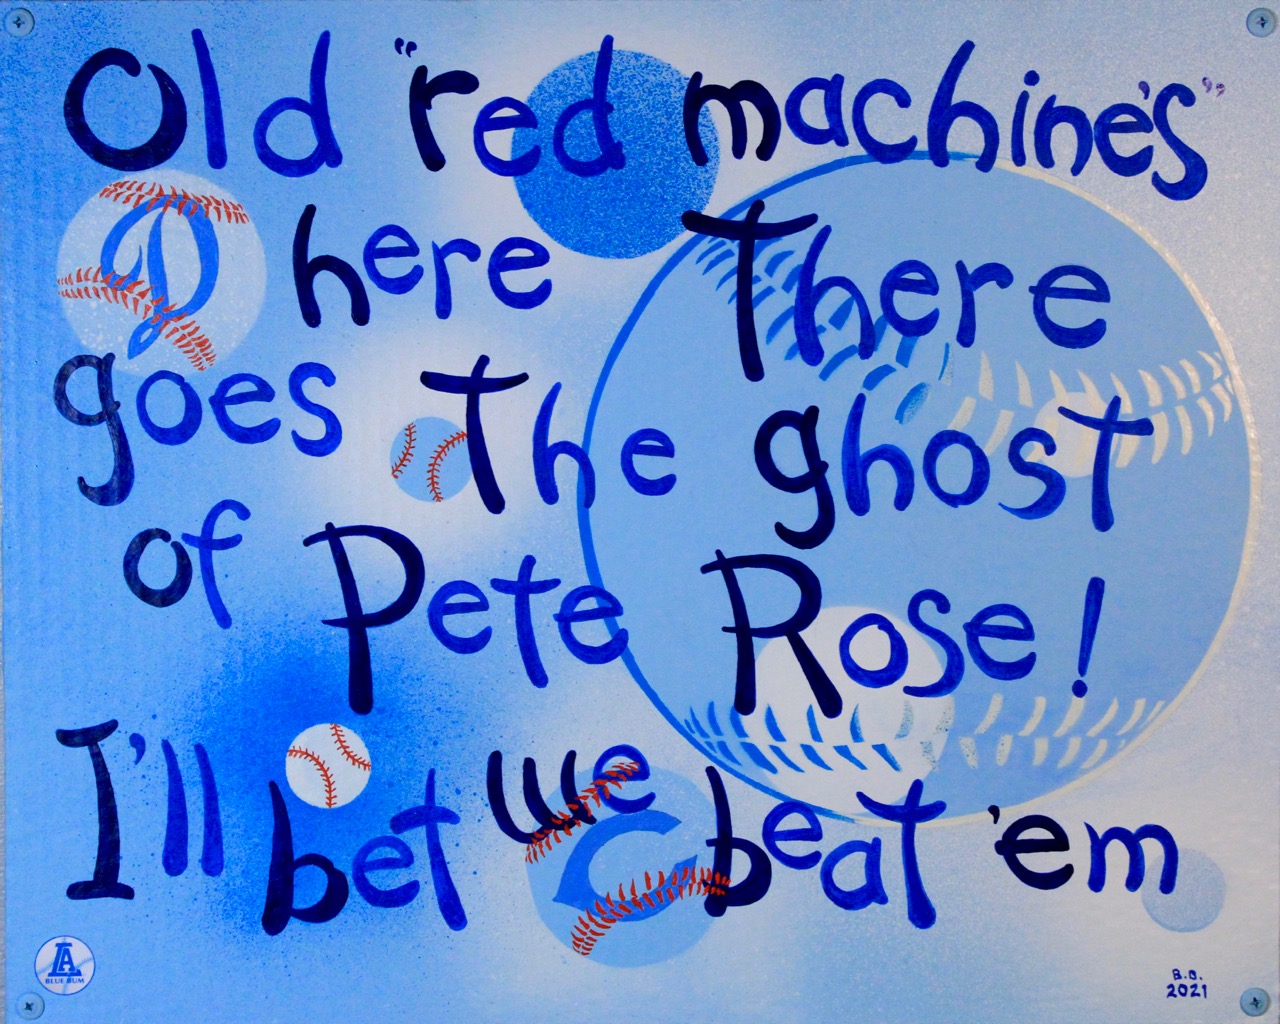 Old "red machine's"
here There
goes The ghost
of Pete Rose!
I'll bet we beat 'em
D
C
LA
BLUE BUM
B.B.
2021